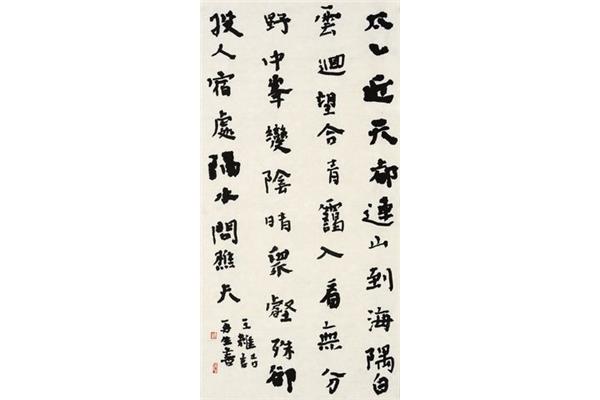 太乙近天都連山到海隅白
雲迴望合青靄入看無分
野中峯變陰晴眾壑殊卻
投人宿處隔水問樵夫
王維詩
再生書